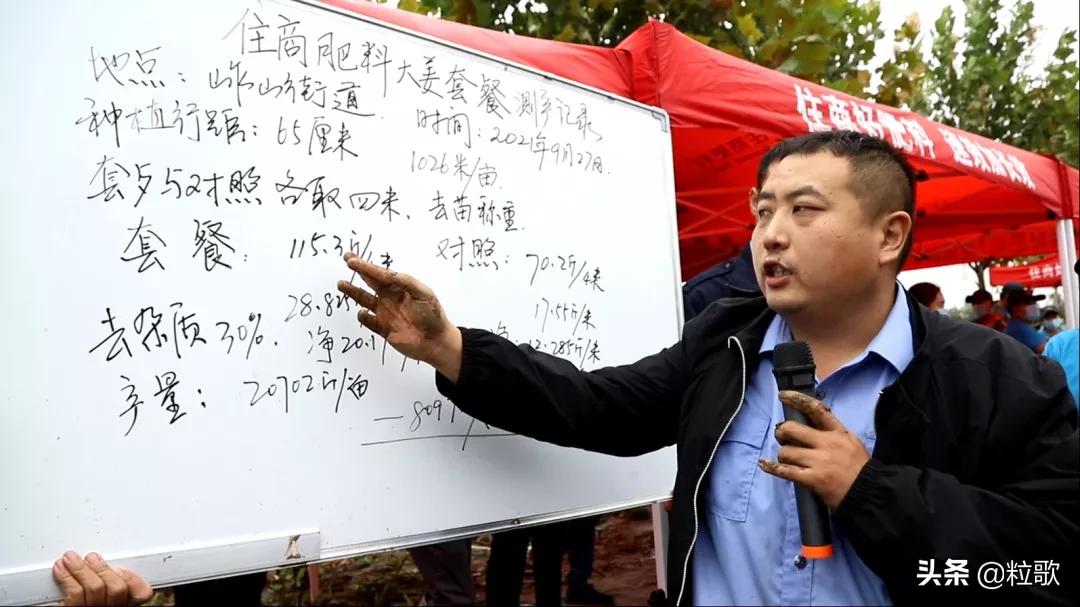 住商肥料大姜套餐测产记录
地点：岞山街道
时间：2021年9月27日
种植行距：65厘米
1026米/亩
套歺与对照各取四米，去苗称重
套餐：115.3斤/米
对照：70.2斤/4米
28.825
17.55斤/米
去杂质30%，净20.1
12.285斤/米
产量：20702斤/亩
住商好肥料
头条 @粒歌